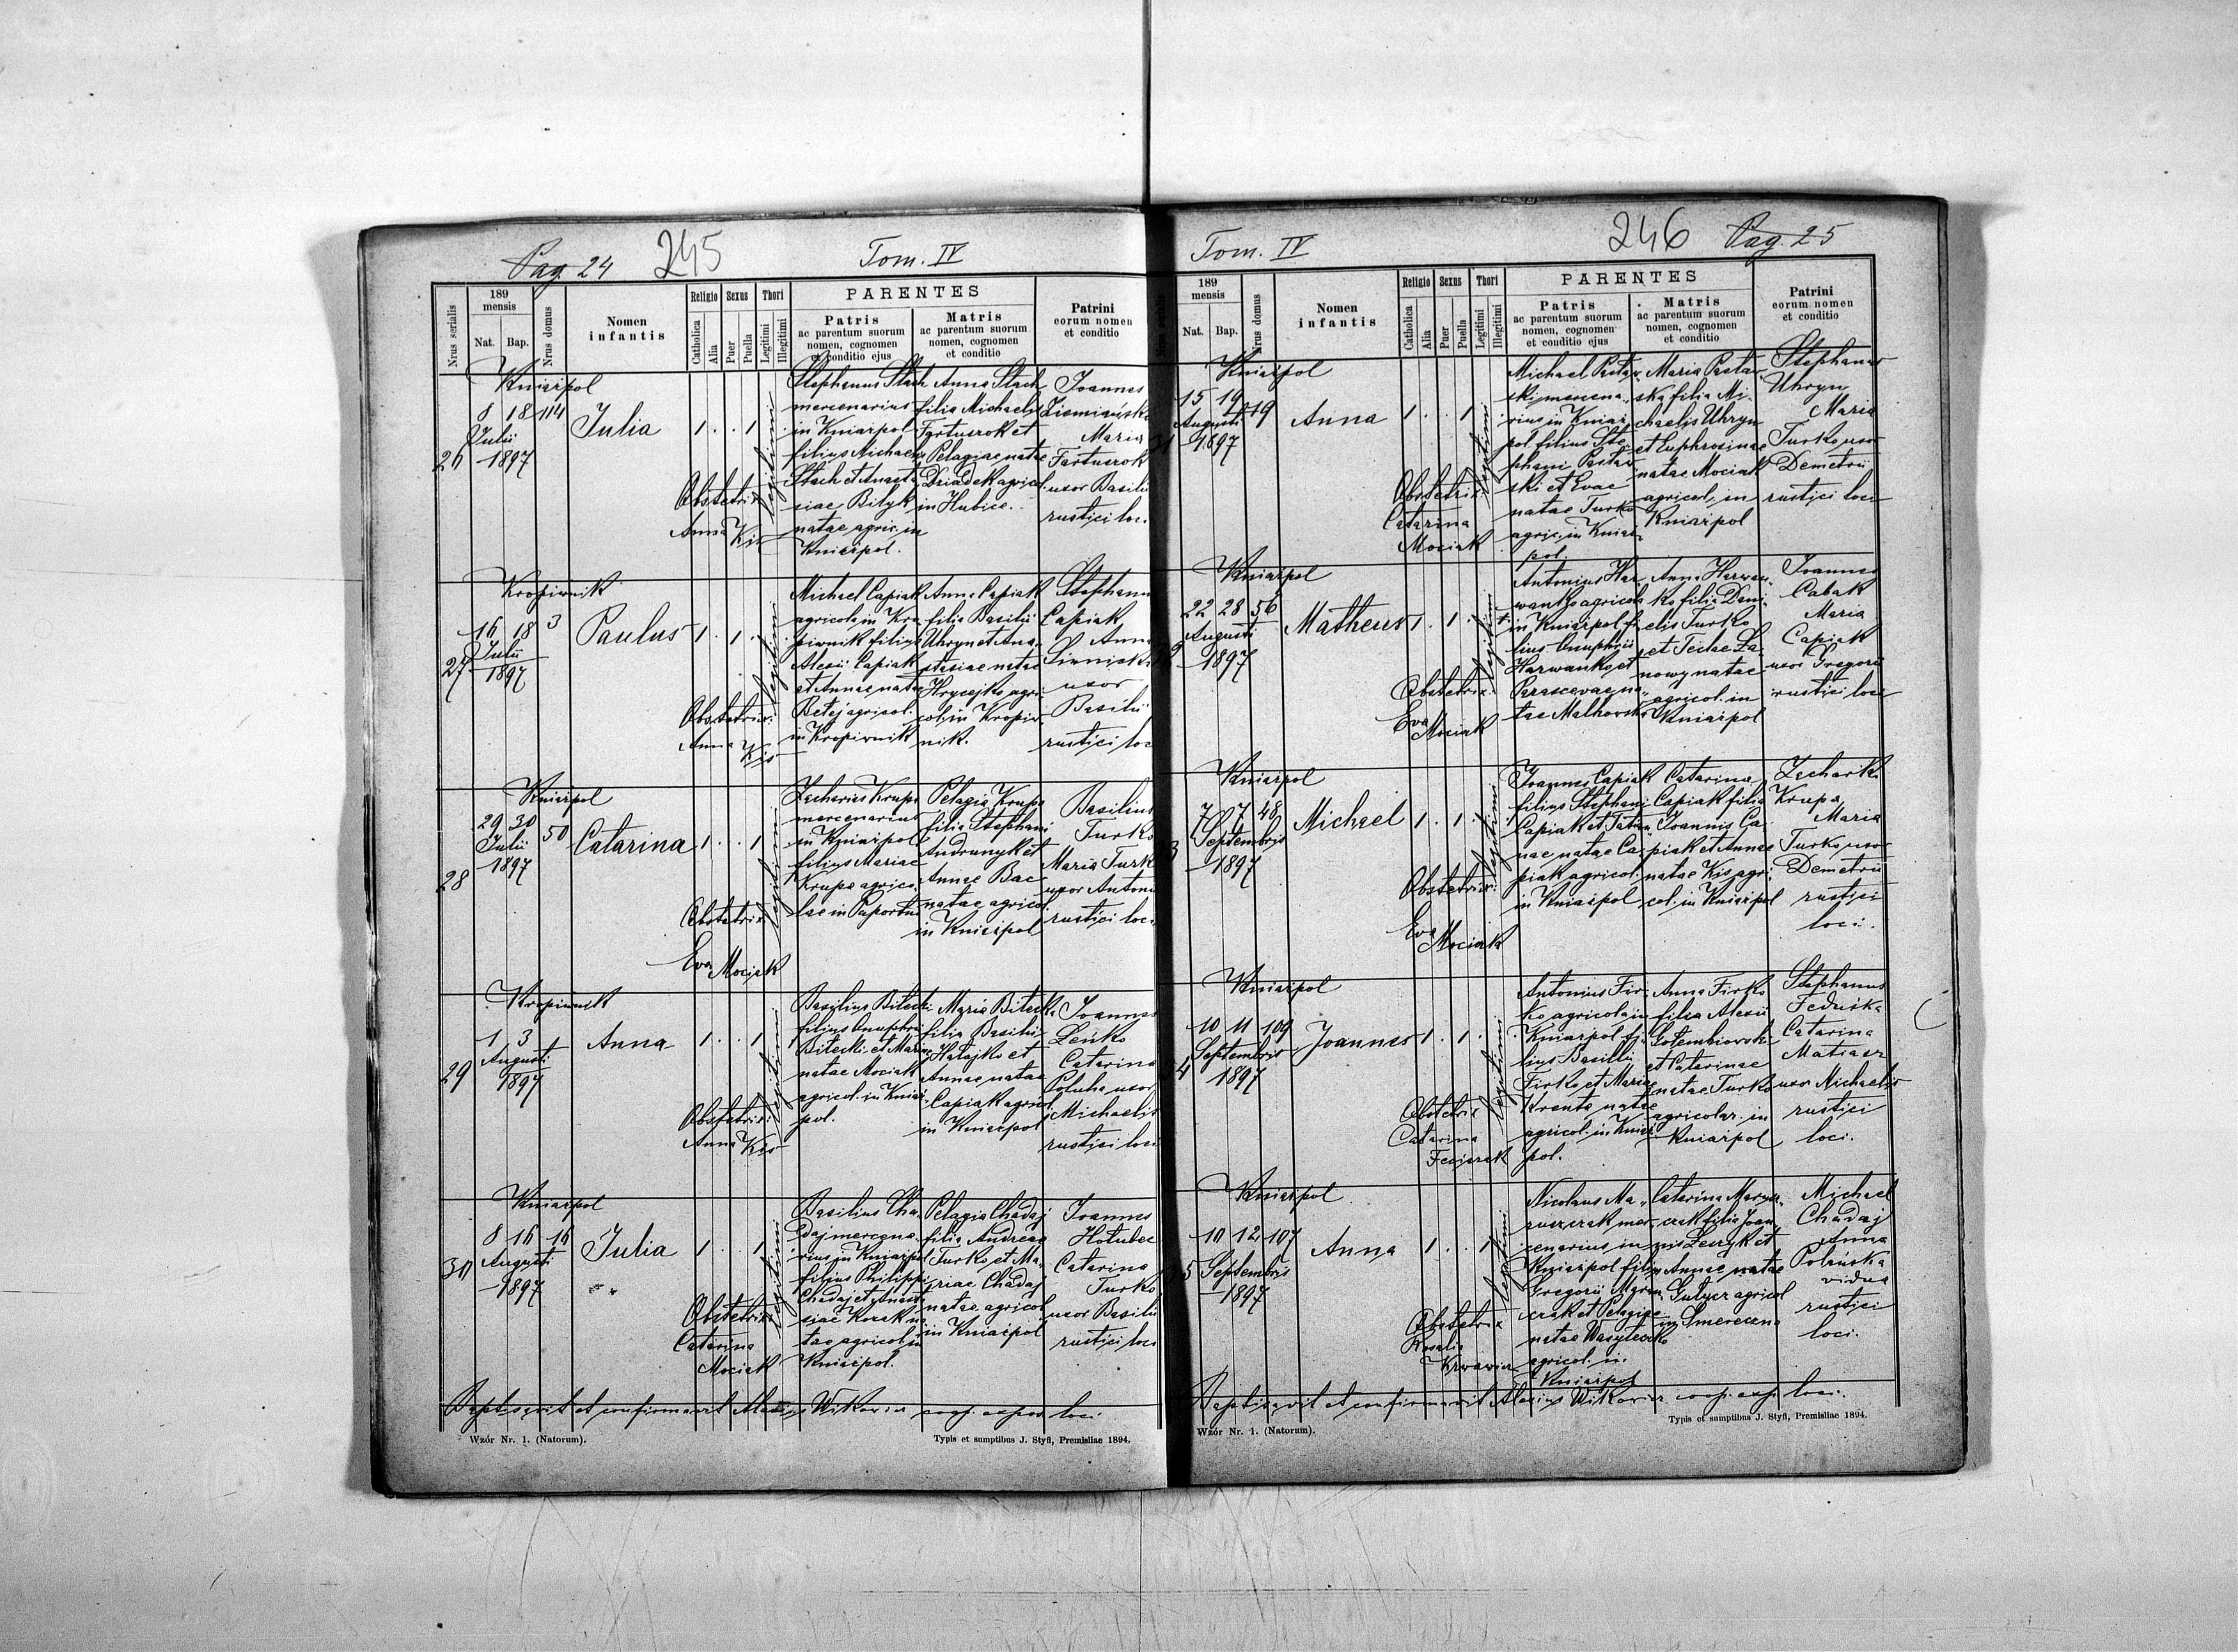 Pag. 24 245 Tom. IV
Nrus serialis
189
mensis
Nat. Bap.
Nrus domus
Nomen
infantis
Religio Sexus Thori
Catholica
Alia
Puer
Puella
Legitimi
Illegitimi
PARENTES
Patris
ac parentum suorum
nomen, cognomen
et conditio ejus
Matris
ac parentum suorum
nomen, cognomen
et conditio
Patrini
eorum nomen
et conditio
Kniażpol
26
8 18 114
Julii
1897
Julia
1 . . 1
legitimi
Obstetrix
Anna Kis
Stephanus Stach
mercenarius
in Kniażpol
filius Michaelis
Stach et Anasta
siae Bilyk
natae agric. in
Kniażpol.
Anna Stach
filia Michaelis
et
Pelagiae natae
Dziadek agricol.
in Hubice.
Joannes
Maria
uxor Basilii
rustici loci
Kropiwnik
27
16 18 3
Julii
1897
Paulus
1 . 1 .
legitimi
Obstetrix
Anna Kis
Michael Capiak
agricola in Kro
piwnik filius
Alexii Capiak
et Annae natae
Betej agricol.
in Kropiwnik
Anna Capiak
filia Basilii
Uhryn et Ana
stasiae natae
Hrycejko agri
col. in Kropiw
nik.
Stephanus
Capiak
Anna
uxor
Basilii
rustici loci
Kniażpol
28
29 30 50
Julii
1897
Catarina
1 . . 1
legitimi
Obstetrix
Eva Mociak
Zacharias Krupa
mercenarius
in Kniażpol
filius Mariae
Krupa agrico
lae in Paportno
Pelagia Krupa
filia Stephani
Andrunyk et
Annae Bac
natae agricol.
in Kniażpol
Basilius
Turko
Maria Turko
uxor Antonii
rustici loci
Kropiwnik
29
1 3
Augusti
1897
Anna
1 . . 1
legitimi
Obstetrix
Anna Kis
Basilius Bilecki
filius Onuphrii
Bilecki et Mariae
natae Mociak
agricol. in Kniaż
pol.
Maria Bilecka
filia Basilii
Hatajko et
Annae natae
Capiak agricol
in Kniażpol
Joannes
Leńko
Catarina
Poluha uxor
Michaelis
rustici loci
Kniażpol
30
8 16 16
Augusti
1897
Julia
1 . . 1
legitimi
Obstetrix
Catarina
Mociak
Basilius Cha
daj mercena
rius in Kniażpol
filius Philippi
Chadaj et Anasta
siae Kozak na
tae agricol in
Kniażpol.
Pelagia Chadaj
filia Andreae
Turko et Ma
riae Chadaj
natae agricol
in Kniażpol
Joannes
Hołubec
Catarina
Turko
uxor Basilii
rustici loci
Baptisavit et confirmavit Alexius Witowicz coop. expos loci
Wzór Nr. 1. (Natorum).
Typis et sumptibus J. Styfi, Premisliae 1894.
Tom. IV 246 Pag. 25
189
mensis
Nat. Bap.
Nrus domus
Nomen
infantis
Religio Sexus Thori
Catholica
Alia
Puer
Puella
Legitimi
Illegitimi
PARENTES
Patris
ac parentum suorum
nomen, cognomen
et conditio ejus
Matris
ac parentum suorum
nomen, cognomen
et conditio
Patrini
eorum nomen
et conditio
Kniażpol
31
15 19
Augusti
1897
Anna
1 . . 1
legitimi
Obstetrix
Catarina
Mociak
Michael Pastaw
ski mercena
rius in Kniaż
pol filius Ste
phani Pastaw
ski et Evae
natae Turko
agric. in Kniaż
pol.
Maria Pastaw
ska filia Mi
chaelis Uhryn
et Euphrosinae
natae Mociak
agricol. in
Kniażpol
Stephanus
Uhryn
Maria
Turko uxor
Demetrii
rustici loci
Kniażpol
22 28 56
Augusti
1897
Matheus
1 . 1 .
legitimi
Obstetrix
Eva
Mociak
Antonius Har
wanko agricola
in Kniażpol fi
lius Onuphrii
Harwanko et
Parascevae na
tae Malhowski
Anna Harwan
ko filia Dani
elis Turko
et Teclae La
nowy natae
agricol. in
Kniażpol
Joannes
Cabak
Maria
Capiak
uxor Gregorii
rustici loci
Kniażpol
7 7 48
Septembris
1897
Michael
1 . 1 .
legitimi
Obstetrix
Eva
Mociak
Joannes Capiak
filius Stephani
Capiak et Tatia
nae natae Ca
piak agricol.
in Kniażpol
Catarina
Capiak filia
Joannis Ca
piak et Annae
natae Kis agri
col. in Kniażpol
Krupa
Maria
Turko uxor
Demetrii
rustici
loci.
Kniażpol
10 11 109
Septembris
1897
Joannes
1 . 1 .
legitimi
Obstetrix
Catarina
Antonius Fir
ko agricola in
Kniażpol fi
lius Basilii
Firko et Mariae
natae
agricol. in Kniaż
pol.
Anna Firko
filia Alexii
Gołembiowski
et Catarinae
natae Turko
agricolar. in
Kniażpol
Stephanus
Catarina
uxor Michaelis
rustici
loci.
Kniażpol
10 12 107
Septembris
1897
Anna
1 . . 1
legitimi
Obstetrix
Rosalia
Nicolaus Ma
mer
cenarius in
Kniażpol filius
Gregorii
et Pelagiae
natae
agricol. in
Kniażpol
Catarina
filia Joan
nis et
Annae natae
agricol
in Smereczna
Michael
Chadaj
Anna
Polańska
vidua
rustici
loci.
Baptisavit et confirmavit Alexius Witowicz coop. exp. loci.
Wzór Nr. 1. (Natorum).
Typis et sumptibus J. Styfi, Premisliae 1894.